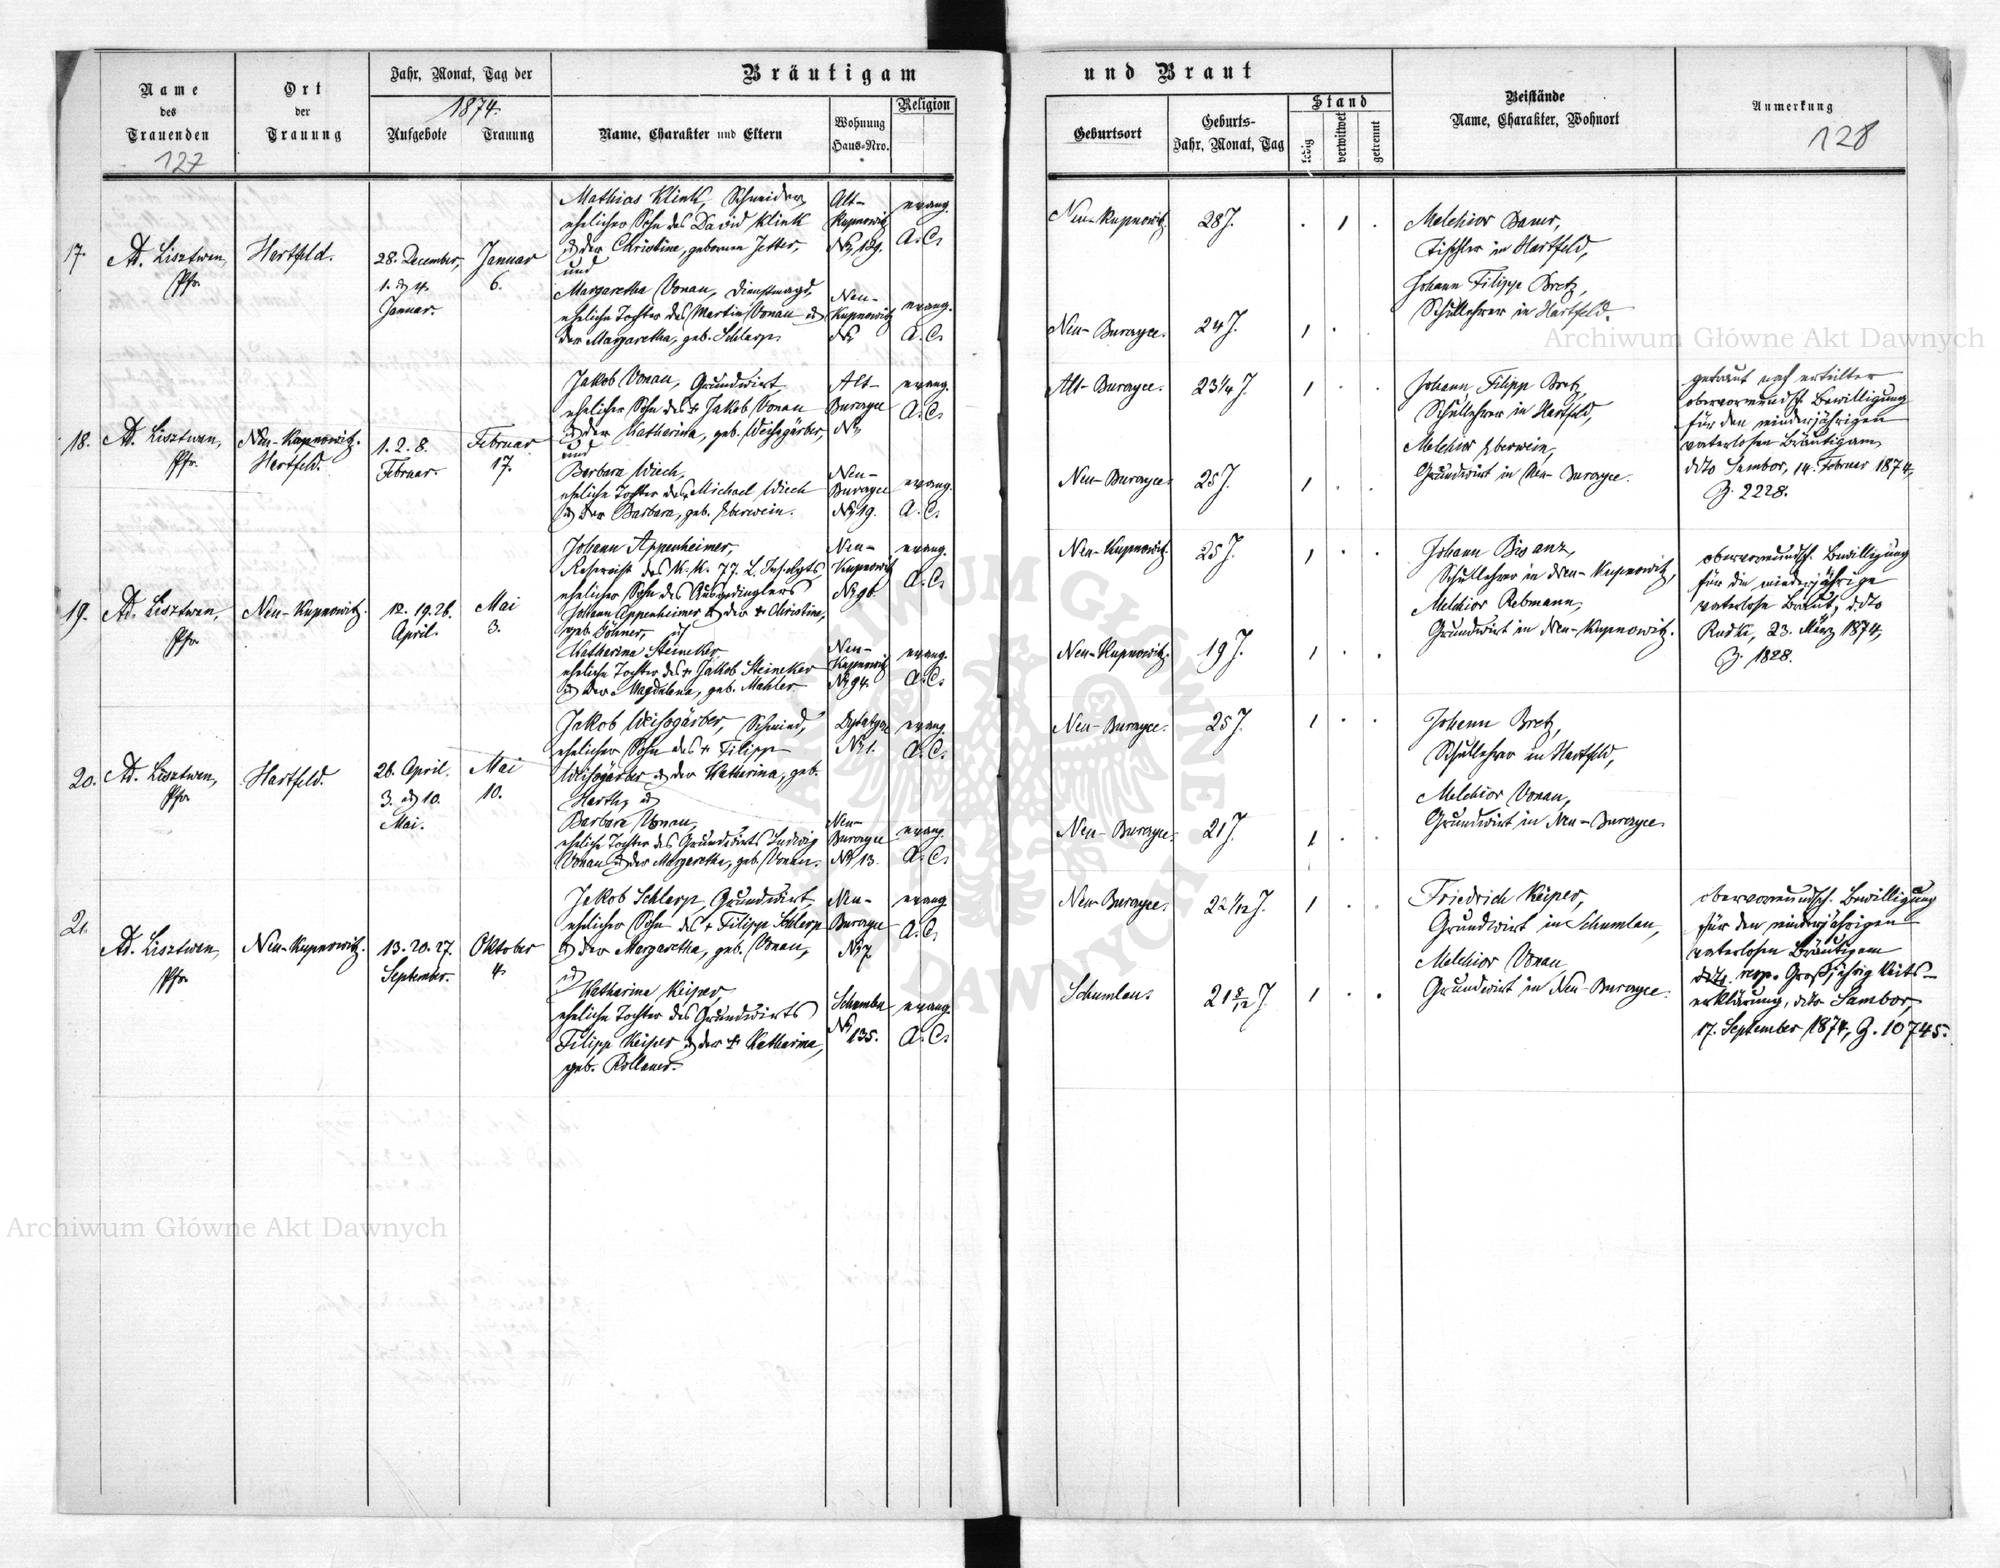 Name
des
Trauenden
127
Ort
der
Trauung
Jahr, Monat, Tag der
1874.
Aufgebote
Trauung
Bräutigam
Name, Charakter und Eltern
Wohnung
Haus-Nro.
Religion
und Braut
Geburtsort
Geburts-
Jahr, Monat, Tag
Stand
ledig
verwitwet
getrennt
Beistände
Name, Charakter, Wohnort
Anmerkung
128
17.
Ad. Lisztwan,
Pfr.
Hartfeld.
28. December,
1. & 4.
Januar.
Januar
6.
Mathias Klink, Schneider,
ehelicher Sohn des David Klink
& der Christine, gebornen Jetter,
und
Margaretha Vonau, Dienstmagd,
eheliche Tochter des Martin Vonau &
der Margaretha, geb. Schlarp.
Alt-
Kupnowitz
No 129.
Neu-
Kupnowitz
No
evang.
A. C.
evang.
A. C.
Neu-Kupnowitz.
28 J.
. 1 .
Neu-Burczyce.
24 J.
1 . .
Melchior Bauer,
Tischler in Hartfeld,
Johann Filipp Bretz,
Schullehrer in Hartfeld.
18.
Ad. Lisztwan,
Pfr.
Neu-Kupnowitz.
Hartfeld.
1. 2. 8.
Februar.
Februar
17.
Jakob Vonau, Grundwirt
ehelicher Sohn des + Jakob Vonau
& der Katharina, geb. Weißgärber,
und
Barbara Wiech,
eheliche Tochter des Michael Wiech
& der Barbara, geb. Eberwein.
Alt-
Burczyce
No
Neu-
Burczyce
No 19.
evang.
A. C.
evang.
A. C.
Alt-Burczyce.
23 1/4 J.
1 . .
Neu-Burczyce.
25 J.
1 . .
Johann Filipp Bretz,
Schullehrer in Hartfeld,
Melchior Eberwein,
Grundwirt in Neu-Burczyce.
getraut nach erteilter
obervormundsch. Bewilligung
für den minderjährigen
vaterlosen Bräutigam
ddto Sambor, 14. Februar 1874,
Z. 2228.
19.
Ad. Lisztwan,
Pfr.
Neu-Kupnowitz.
12. 19. 26.
April.
Mai
3.
Johann Appenheimer,
Reservist des k. k. 77. L. Inf. Rgts,
ehelicher Sohn des Ausgedinglers
Johann Appenheimer & der + Christine,
geb. Göhner, &
Katharina Steineker
eheliche Tochter des + Jakob Steineker
& der Magdalena, geb. Mahler
Neu-
Kupnowitz
No 96.
Neu-
Kupnowitz
No 94.
evang.
A. C.
evang.
A. C.
Neu-Kupnowitz.
25 J.
1 . .
Neu-Kupnowitz.
19 J.
1 . .
Johann Bisanz,
Schullehrer in Neu-Kupnowitz,
Melchior Rebmann,
Grundwirt in Neu-Kupnowitz.
obervormundsch. Bewilligung
für die minderjährige
vaterlose Braut, ddto
Rudki, 23. März 1874,
Z. 1828.
20.
Ad. Lisztwan,
Pfr.
Hartfeld.
26. April.
3. & 10.
Mai.
Mai
10.
Jakob Weißgärber, Schmied,
ehelicher Sohn des + Filipp
Weißgärber & der Katharina, geb.
Harth, &
Barbara Vonau,
eheliche Tochter des Grundwirts Ludwig
Vonau & der Margaretha, geb. Vonau.
No 1.
Neu-
Burczyce
No 13.
evang.
A. C.
evang.
A. C.
Neu-Burczyce.
25 J.
1 . .
Neu-Burczyce.
21 J.
1 . .
Johann Bretz,
Schullehrer in Hartfeld,
Melchior Vonau,
Grundwirt in Neu-Burczyce
21.
Ad. Lisztwan,
Pfr.
Neu-Kupnowitz.
13. 20. 27.
September.
Oktober
4.
Jakob Schlarp, Grundwirt,
ehelicher Sohn des + Filipp Schlarp
& der Margaretha, geb. Vonau,
&
Katharina Keiper,
eheliche Tochter des Grundwirts
Filipp Keiper & der + Katharina,
geb. Rollauer.
Neu-
Burczyce
No 7
Schumlau
No 135.
evang.
A. C.
evang.
A. C.
Neu-Burczyce.
22 1/12 J.
1 . .
Schumlau.
21 8/12 J.
1 . .
Friedrich Keiper,
Grundwirt in Schumlau,
Melchior Vonau
Grundwirt in Neu-Burczyce.
obervormundsch. Bewilligung
für den minderjährigen
vaterlosen Bräutigam
ddto. resp. Großjährigkeits-
erklärung, ddto Sambor,
17. September 1874, Z. 10745.
Archiwum Główne Akt Dawnych
Archiwum Główne Akt Dawnych
ARCHIWUM GŁÓWNE
DAWNYCH